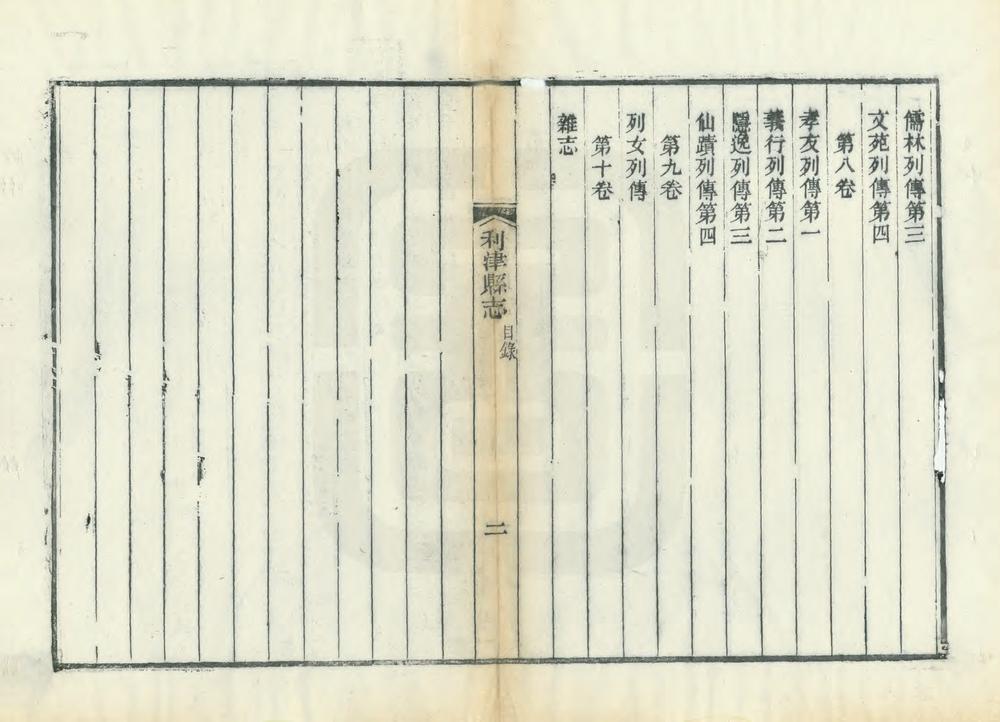 儒林列傳第三
文苑列傳第四
第八卷
孝友列傳第一
義行列傳第二
隱逸列傳第三
仙蹟列傳第四
第九卷
列女列傳
第十卷
雜志
利津縣志
目錄
二